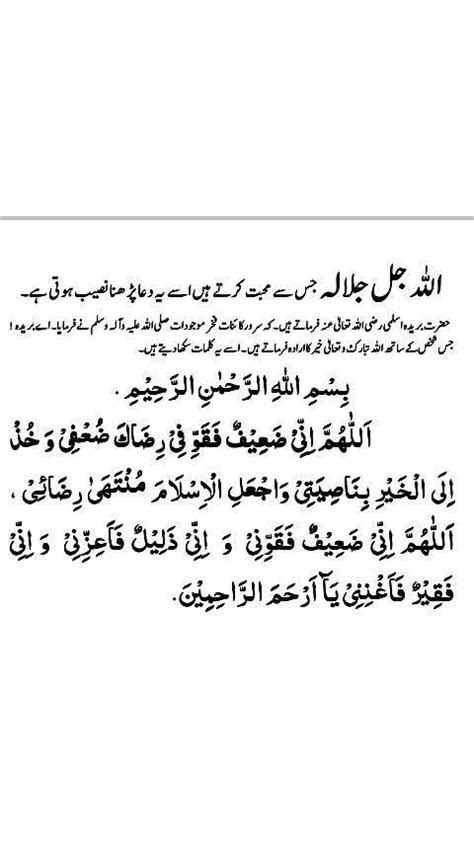 اللہ جل جلالہ جس سے محبت کرتے ہیں اسے یہ دعا پڑھنا نصیب ہوتی ہے۔
حضرت بریدہ اسلمی رضی اللہ تعالیٰ عنہ فرماتے ہیں۔ کہ سرور کائنات فخر موجودات صلی اللہ علیہ وآلہ وسلم نے فرمایا۔ اے بریدہ !
جس شخص کے ساتھ اللہ تبارک و تعالیٰ خیر کا ارادہ فرماتے ہیں۔ اسے یہ کلمات سکھا دیتے ہیں۔
بِسْمِ اللهِ الرَّحْمٰنِ الرَّحِيْمِ .
اَللّٰهُمَّ اِنِّىْ ضَعِيْفٌ فَقَوِّ فِىْ رِضَاكَ ضُعْفِىْ وَ خُذْ
اِلَى الْخَيْرِ بِنَاصِيَتِىْ وَاجْعَلِ الْاِسْلَامَ مُنْتَهٰى رِضَائِىْ ،
اَللّٰهُمَّ اِنِّىْ ضَعِيْفٌ فَقَوِّنِىْ وَ اِنِّىْ ذَلِيْلٌ فَاَعِزَّنِىْ وَ اِنِّىْ
فَقِيْرٌ فَاَغْنِنِىْ يَآ اَرْحَمَ الرَّاحِمِيْنَ.